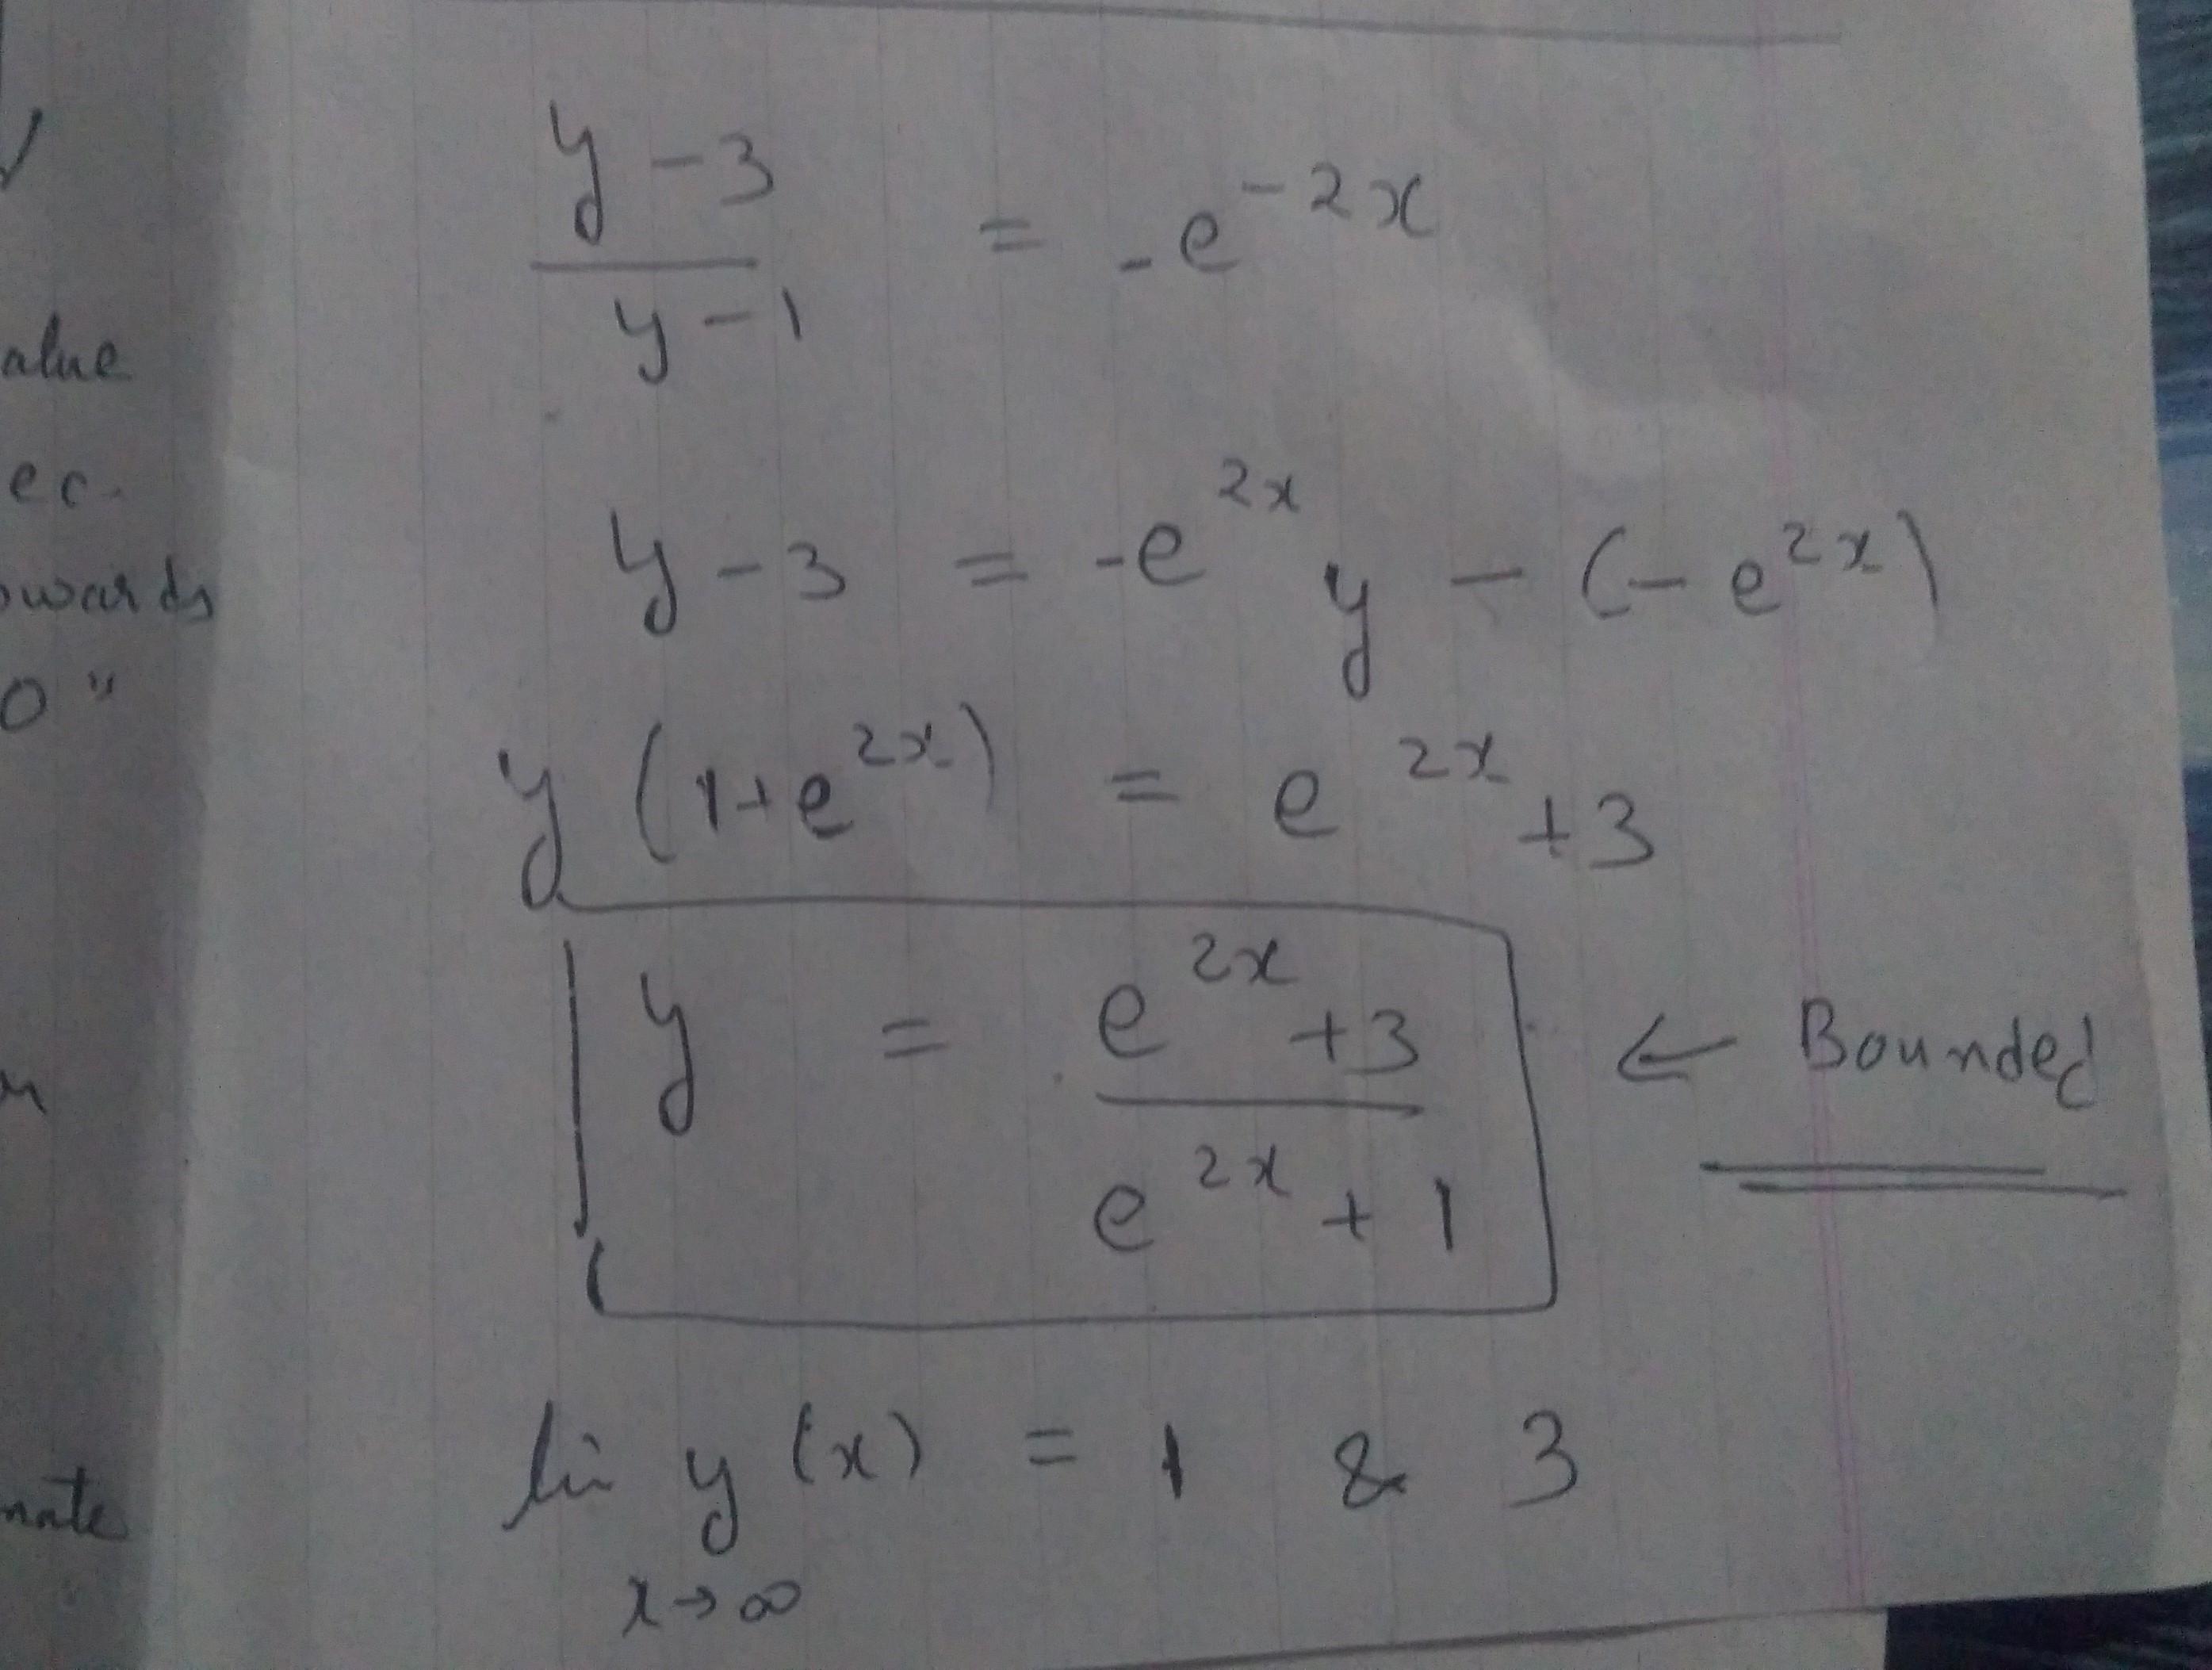 y - 3 / y - 1 = -e^{-2x}
y - 3 = -e^{2x} y - (-e^{2x})
y (1+e^{2x}) = e^{2x} + 3
y = e^{2x} + 3 / e^{2x} + 1 ← Bounded
lim y(x) = 1 & 3
x→∞
alue
ec.
owards
0 "
nate